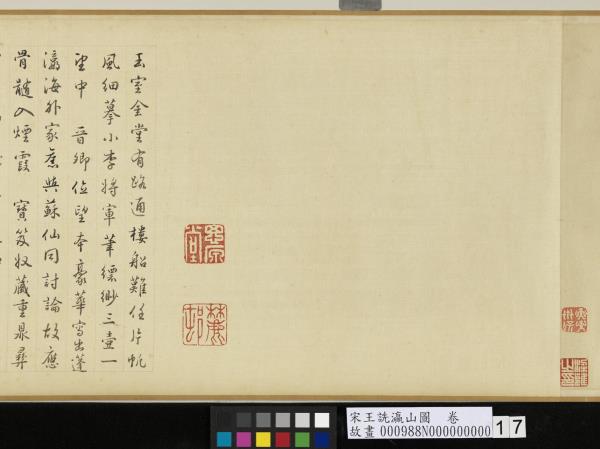 玉室金堂有路通樓船難任片帆
風細摹小李將軍筆縹緲三壺一
望中 晉卿位望本豪華寫出蓬
瀛海外家舊與蘇仙同討論故應
骨髓入煙霞 寶笈收藏重鼎彝
思原堂
麓邨
宋王詵瀛山圖 卷
故畫000988N000000000
17